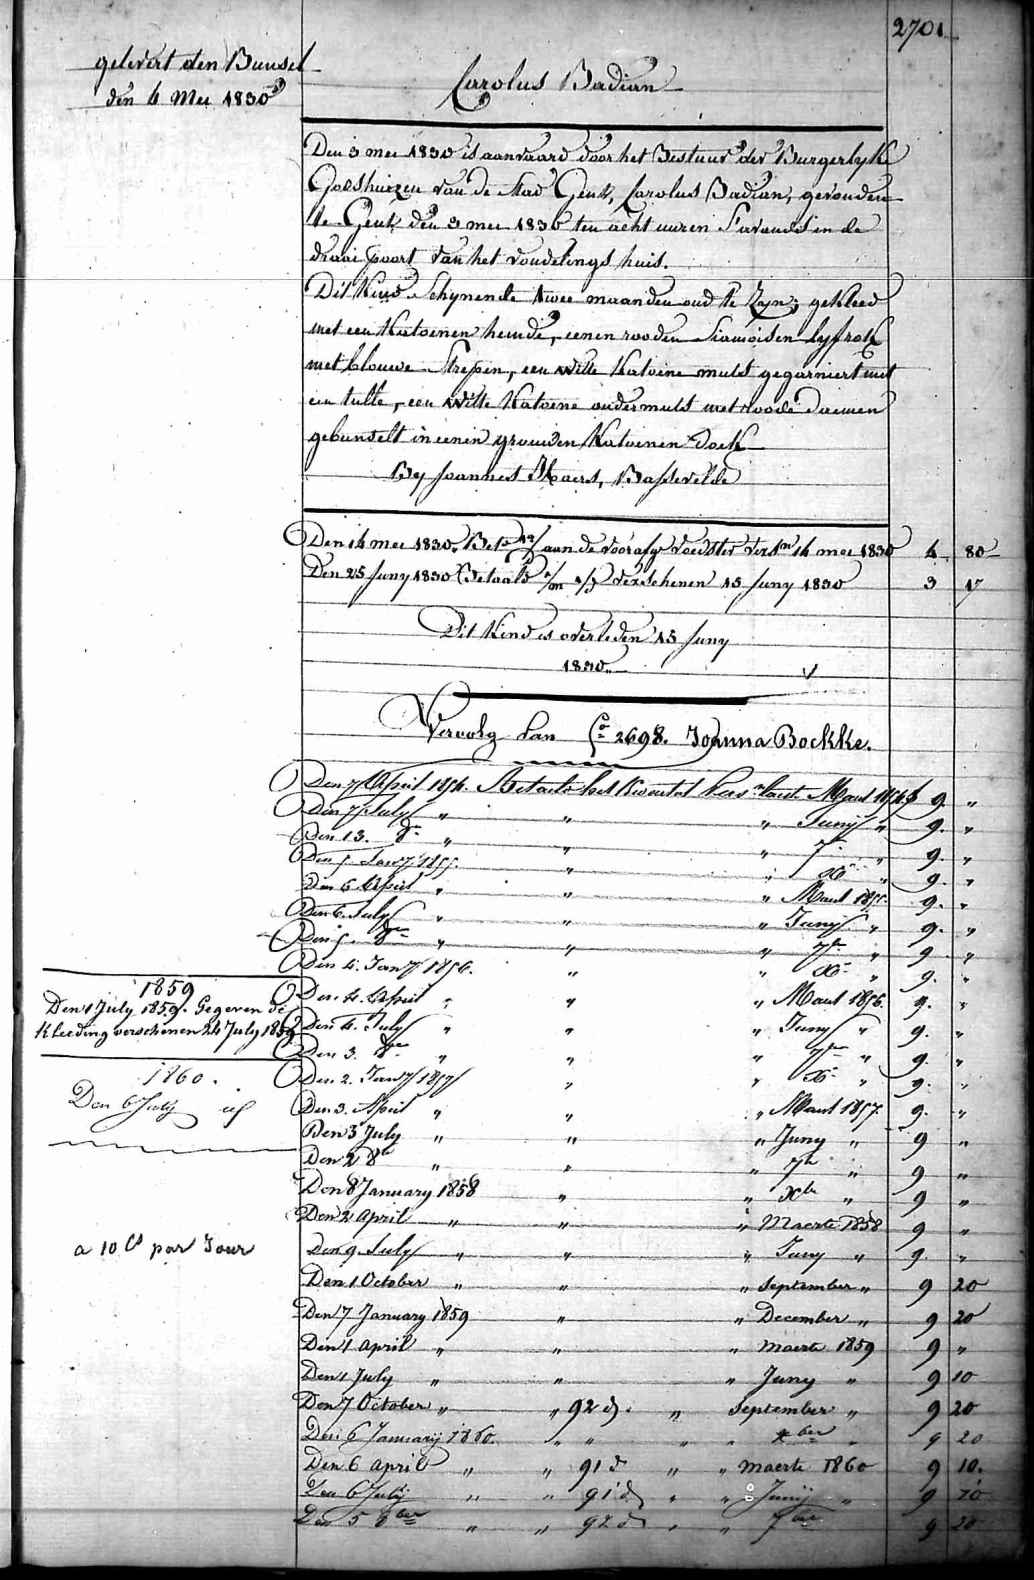 2701
gelevert den Bunsel
den 4 Mei 1830
Carolus Badian
Den 3 mei 1830 is aanvaard door het Bestuur der Burgerlyke
Godshuizen van de Stad Gent, Carolus Badian, gevonden
te Gent den 3 mei 1830 ten acht uuren s'avonds in de
draai poort van het vondelings huis.
Dit Kind Schynende twee maanden oud te Zyn; gekleed
met een Katoenen hemde, eenen rooden Siamoisen lyfrok
met blouwe Strepen, een witte Katoene muts gegarniert met
een tulle, een witte Katoene ondermuts met roode
gebunselt in eenen Katoenen doek
By Joannes Bassevelde
Den 14 mei 1830. Bet. aan de voorafg voedster vers. 14 mei 1830 4 80
Den 25 Juny 1830 Betaald verschenen 15 Juny 1830 3 17
Dit Kind is overleden 15 Juny
1830.
Vervolg van f° 2698. Joanna Bockke.
Den 7 April 1854. Betaald het Kwartal Vers. laste Maart 1854 9. "
Den 7 July " " " Juny " 9. "
Den 13. 8re " " " 7re " 9. "
Den 5 Jany 1855. " " Xre " 9. "
Den 6 April " " " Maart 1855. 9. "
Den 6. July " " " Juny " 9. "
Den 5. 8re " " " 7re " 9 "
Den 4. Jany 1856. " " Xre " 9. "
Den 4. April " " " Maart 1856. 9. "
Den 4. July " " " Juny " 9. "
Den 3. 8re " " " 7re " 9. "
Den 2. Jany 1857 " " Xre " 9. "
Den 3. April " " " Maart 1857. 9. "
Den 3 July " " " Juny " 9 "
Den 2 8re " " " 7re " 9 "
Den 8 January 1858 " " Xbre " 9 "
Den 2 April " " " Maerte 1858 9 "
Den 9 July " " " Juny " 9. "
Den 1 October " " " September " 9 20
Den 7 January 1859 " " December " 9 20
Den 1 April " " " maerte 1859 9 "
Den 1 July " " " Juny " 9 10
Den 7 October " " 92 d. " September " 9 20
Den 6 January 1860. " " " " xber " 9 20
Den 6 April " " 91 d " " maerte 1860 9 10.
Den 6 July " " 91 d " " Junij " 9 10
Den 5 8ber " " 92 d " " 7ber 9 20
1859
Den 1 July 1859. Gegeven de
Kleeding verschenen 24 July 1859
1860.
Den 6 July id
a 10 Cs par Jour